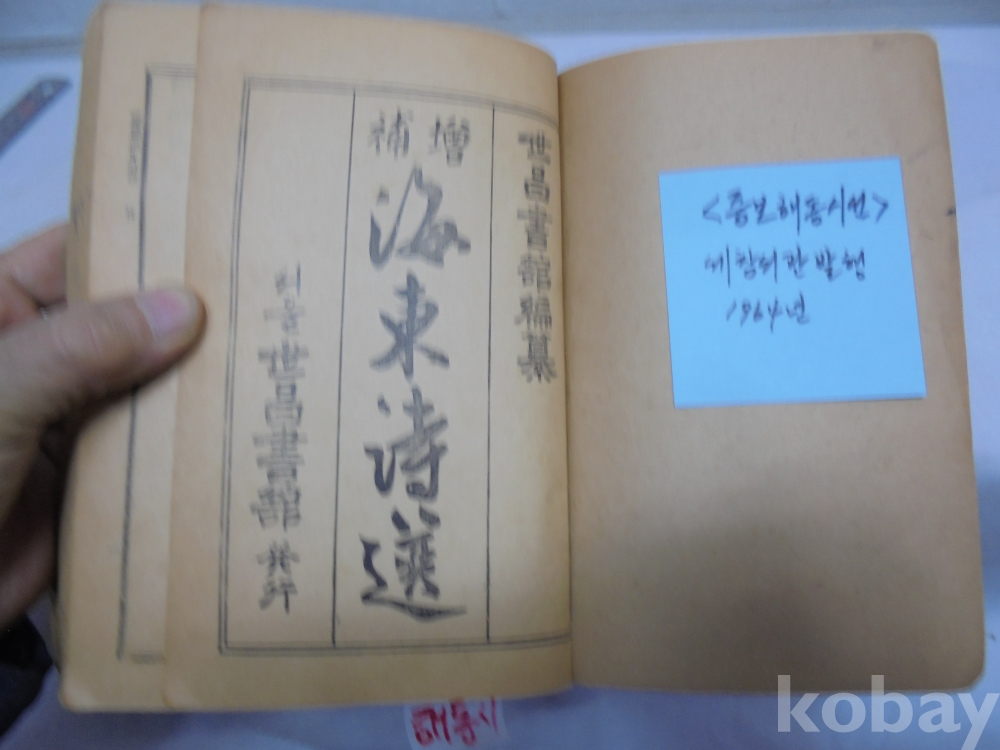 世昌書館編纂
增補
海東詩選
서울 世昌書館 発行
<증보해동시선>
세창서관 발행
1964년
해동시
kobay